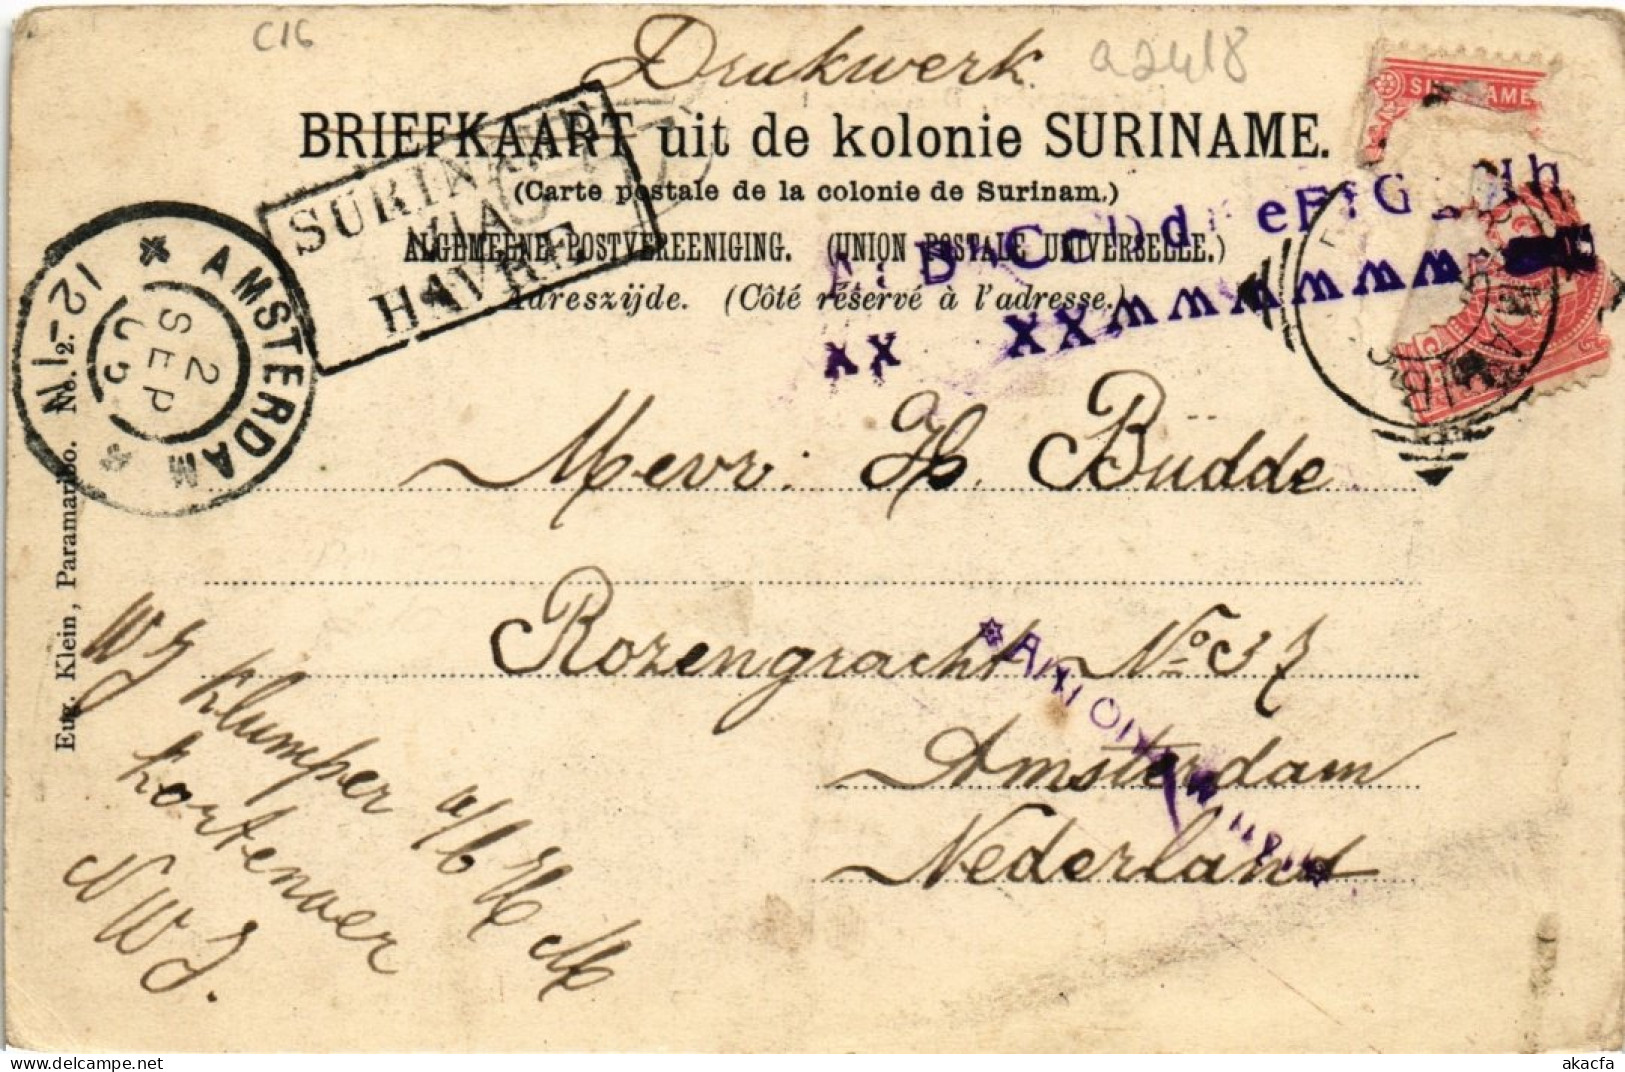 C16
Drukwerk
a2418
BRIEFKAART uit de kolonie SURINAME.
(Carte postale de la colonie de Surinam.)
ALGEMEENE POSTVEREENIGING. (UNION POSTALE UNIVERSELLE.)
Adreszijde. (Côté réservé à l'adresse.)
SURINAME
VIA
HAVRE
SURINAME
AMSTERDAM
12-1 N
2
SEP
05
xx xxmmmmmmmm
Mevr: H. Büdde
Rozengracht No 37
Amsterdam
Nederland
W J Klumper a/b Hr Ms
Kortenaer
N W J.
Eug. Klein, Paramaribo. No. 2.
akacfa